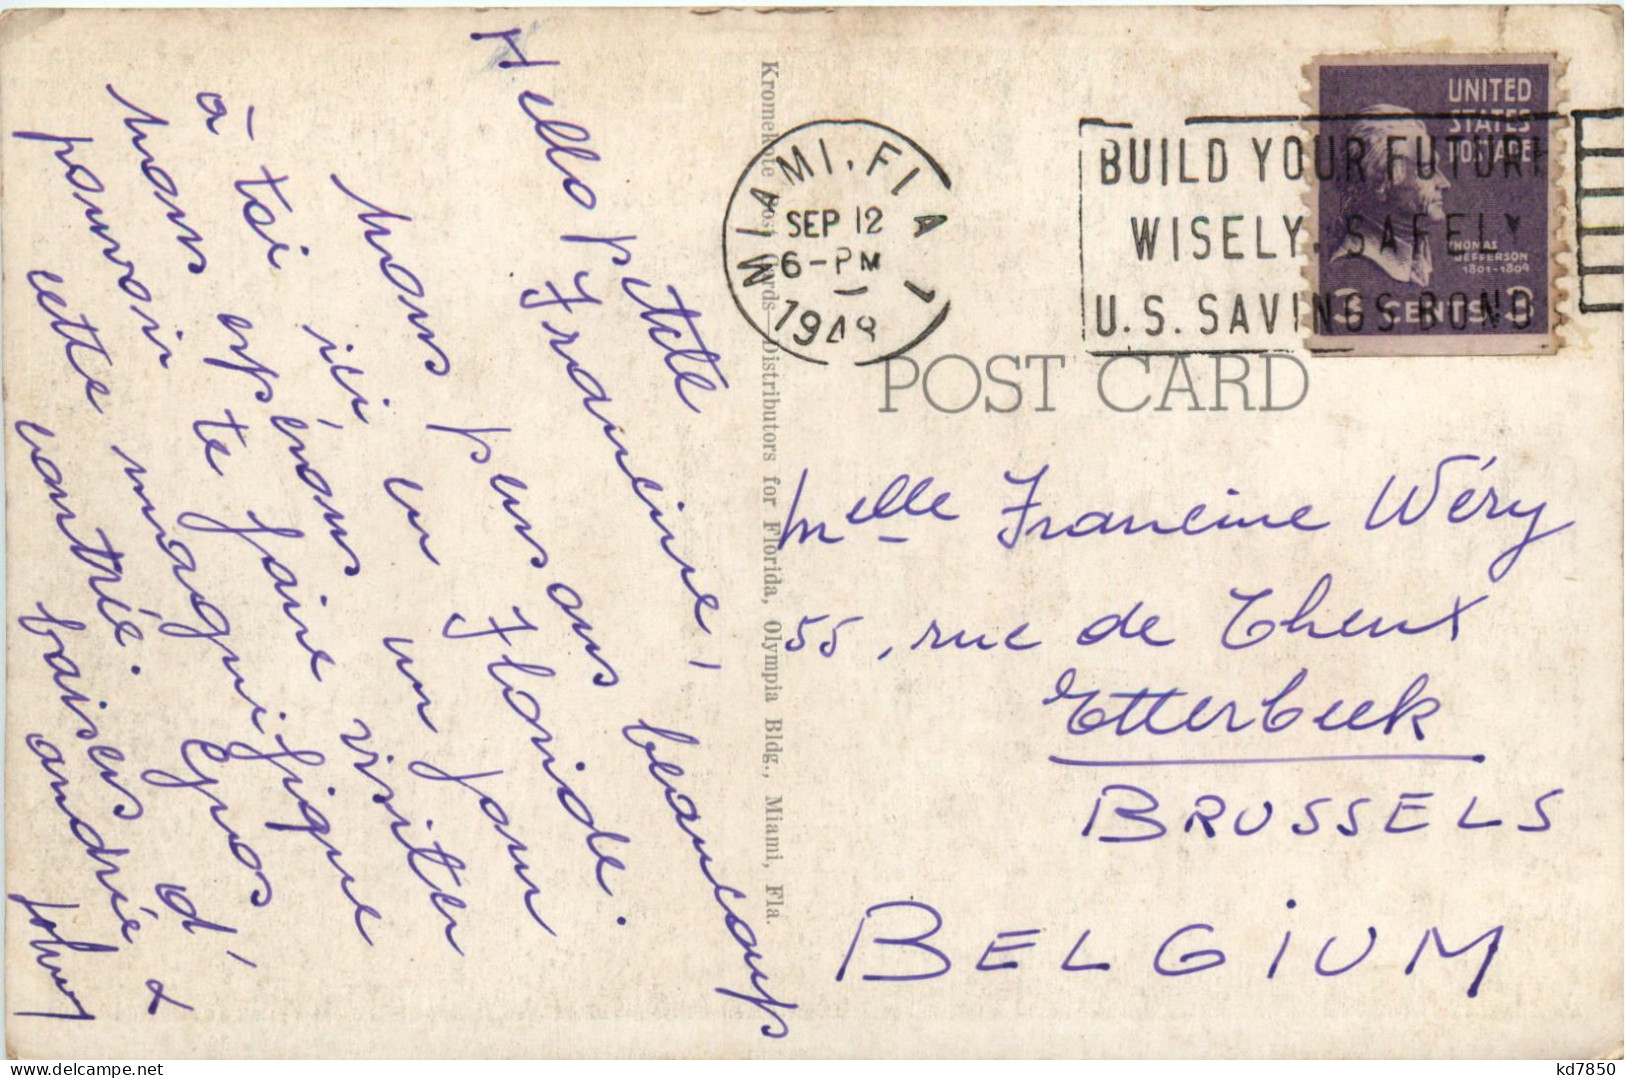 Hello petite
Francine!
Nous pensons beaucoup
à toi ici en Floride.
Nous espérons un jour
pouvoir te faire visiter
cette magnifique
contrée. Gros
baisers d'
andrée &
Johnny
Kromekote Post Cards - Distributors for Florida, Olympia Bldg., Miami, Fla.
MIAMI, FLA
SEP 12
6-PM
1948
1
BUILD YOUR FUTURE
WISELY, SAFELY
U.S. SAVINGS BOND
UNITED
STATES
POSTAGE
THOMAS
JEFFERSON
1801-1809
3 CENTS 3
POST CARD
Melle Francine Wéry
55, rue de Theux
Etterbeek
BRUSSELS
BELGIUM
kd7850